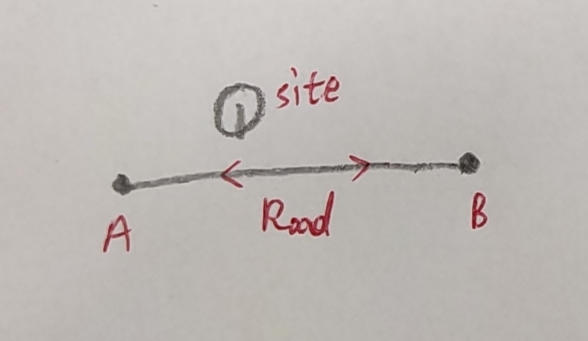 site
Road
A
B